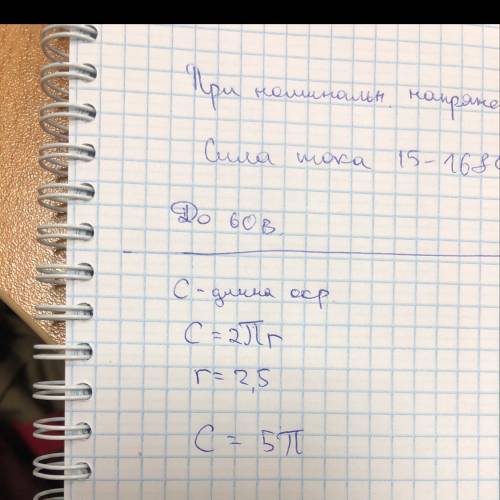 При номинальн. напряже
Сила тока 15-168
До 60 в.
С - длина окр.
С = 2πr
r = 2,5
С = 5π